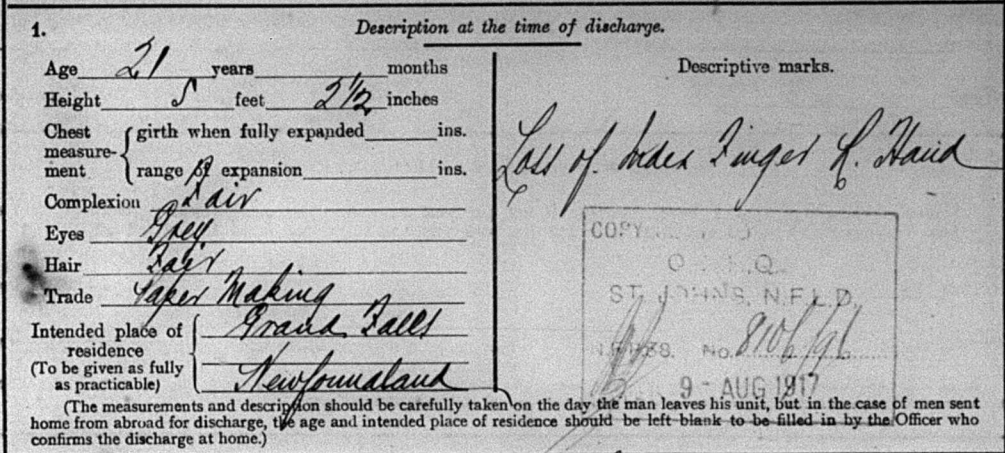 1. Description at the time of discharge.
Age 21 years months
Height 5 feet 2 1/2 inches
Chest measure- ment
girth when fully expanded ins.
range of expansion ins.
Complexion Fair
Eyes Grey
Hair Fair
Trade Paper Making
Intended place of residence
(To be given as fully as practicable)
Grand Falls
Newfoundland
Descriptive marks.
Loss of Index Finger L. Hand
COPY
O Q
ST. JOHNS, N.F.L.D.
No.
9 - AUG 1917
(The measurements and description should be carefully taken on the day the man leaves his unit, but in the case of men sent
home from abroad for discharge, the age and intended place of residence should be left blank to be filled in by the Officer who
confirms the discharge at home.)